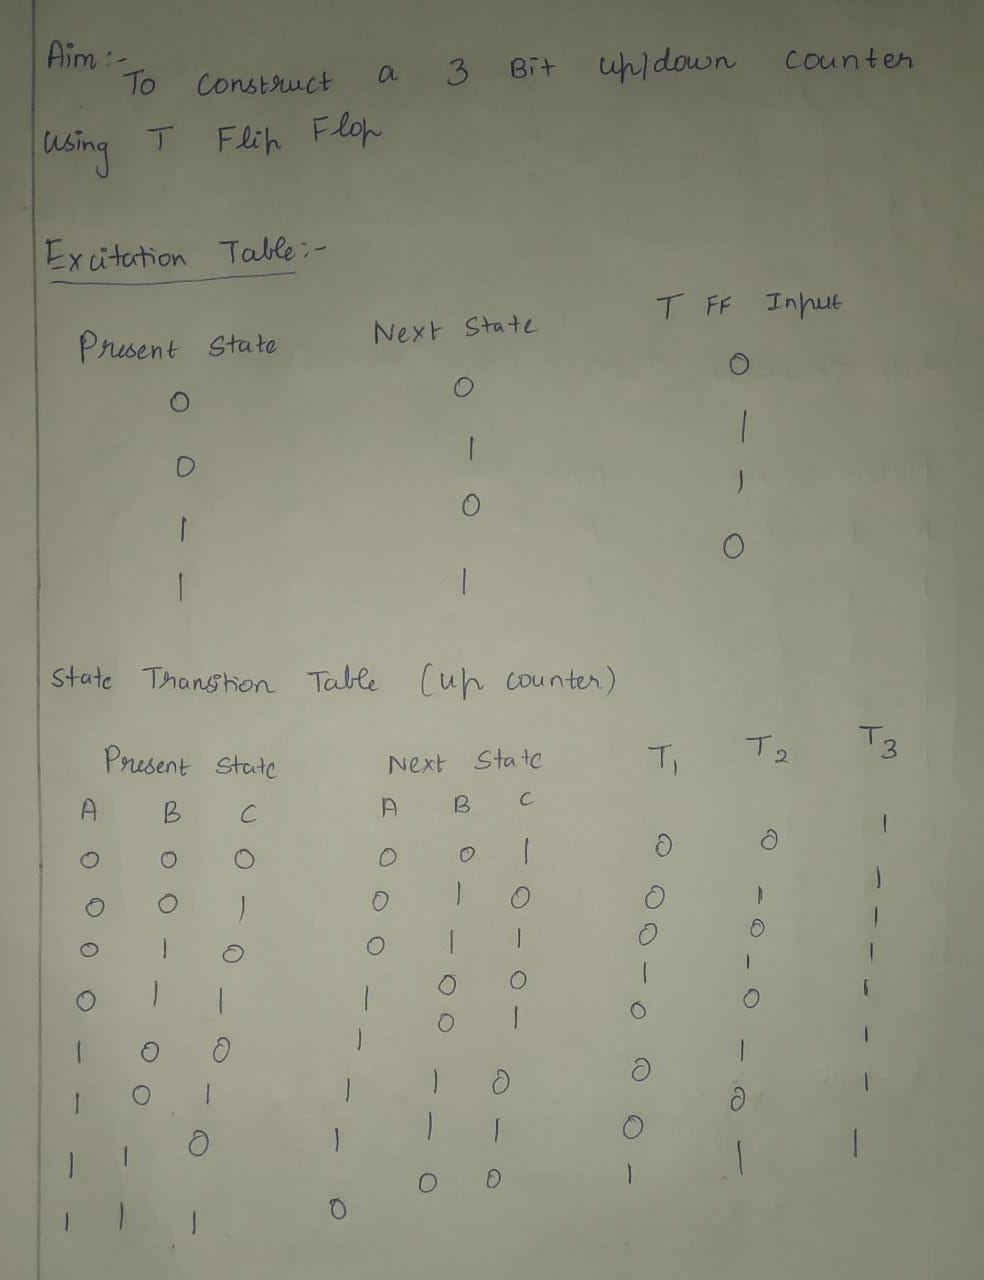 Aim :-
To construct a 3 Bit up/down counter
using T Flip Flop
Excitation Table:-
Present State Next State T FF Input
0 0 0
0 1 1
1 0 1
1 1 0
State Transition Table (up counter)
Present State Next State T1 T2 T3
A B C A B C
0 0 0 0 0 1 0 0 1
0 0 1 0 1 0 0 1 1
0 1 0 0 1 1 0 0 1
0 1 1 1 0 0 1 1 1
1 0 0 1 0 1 0 0 1
1 0 1 1 1 0 0 1 1
1 1 0 1 1 1 0 0 1
1 1 1 0 0 0 1 1 1